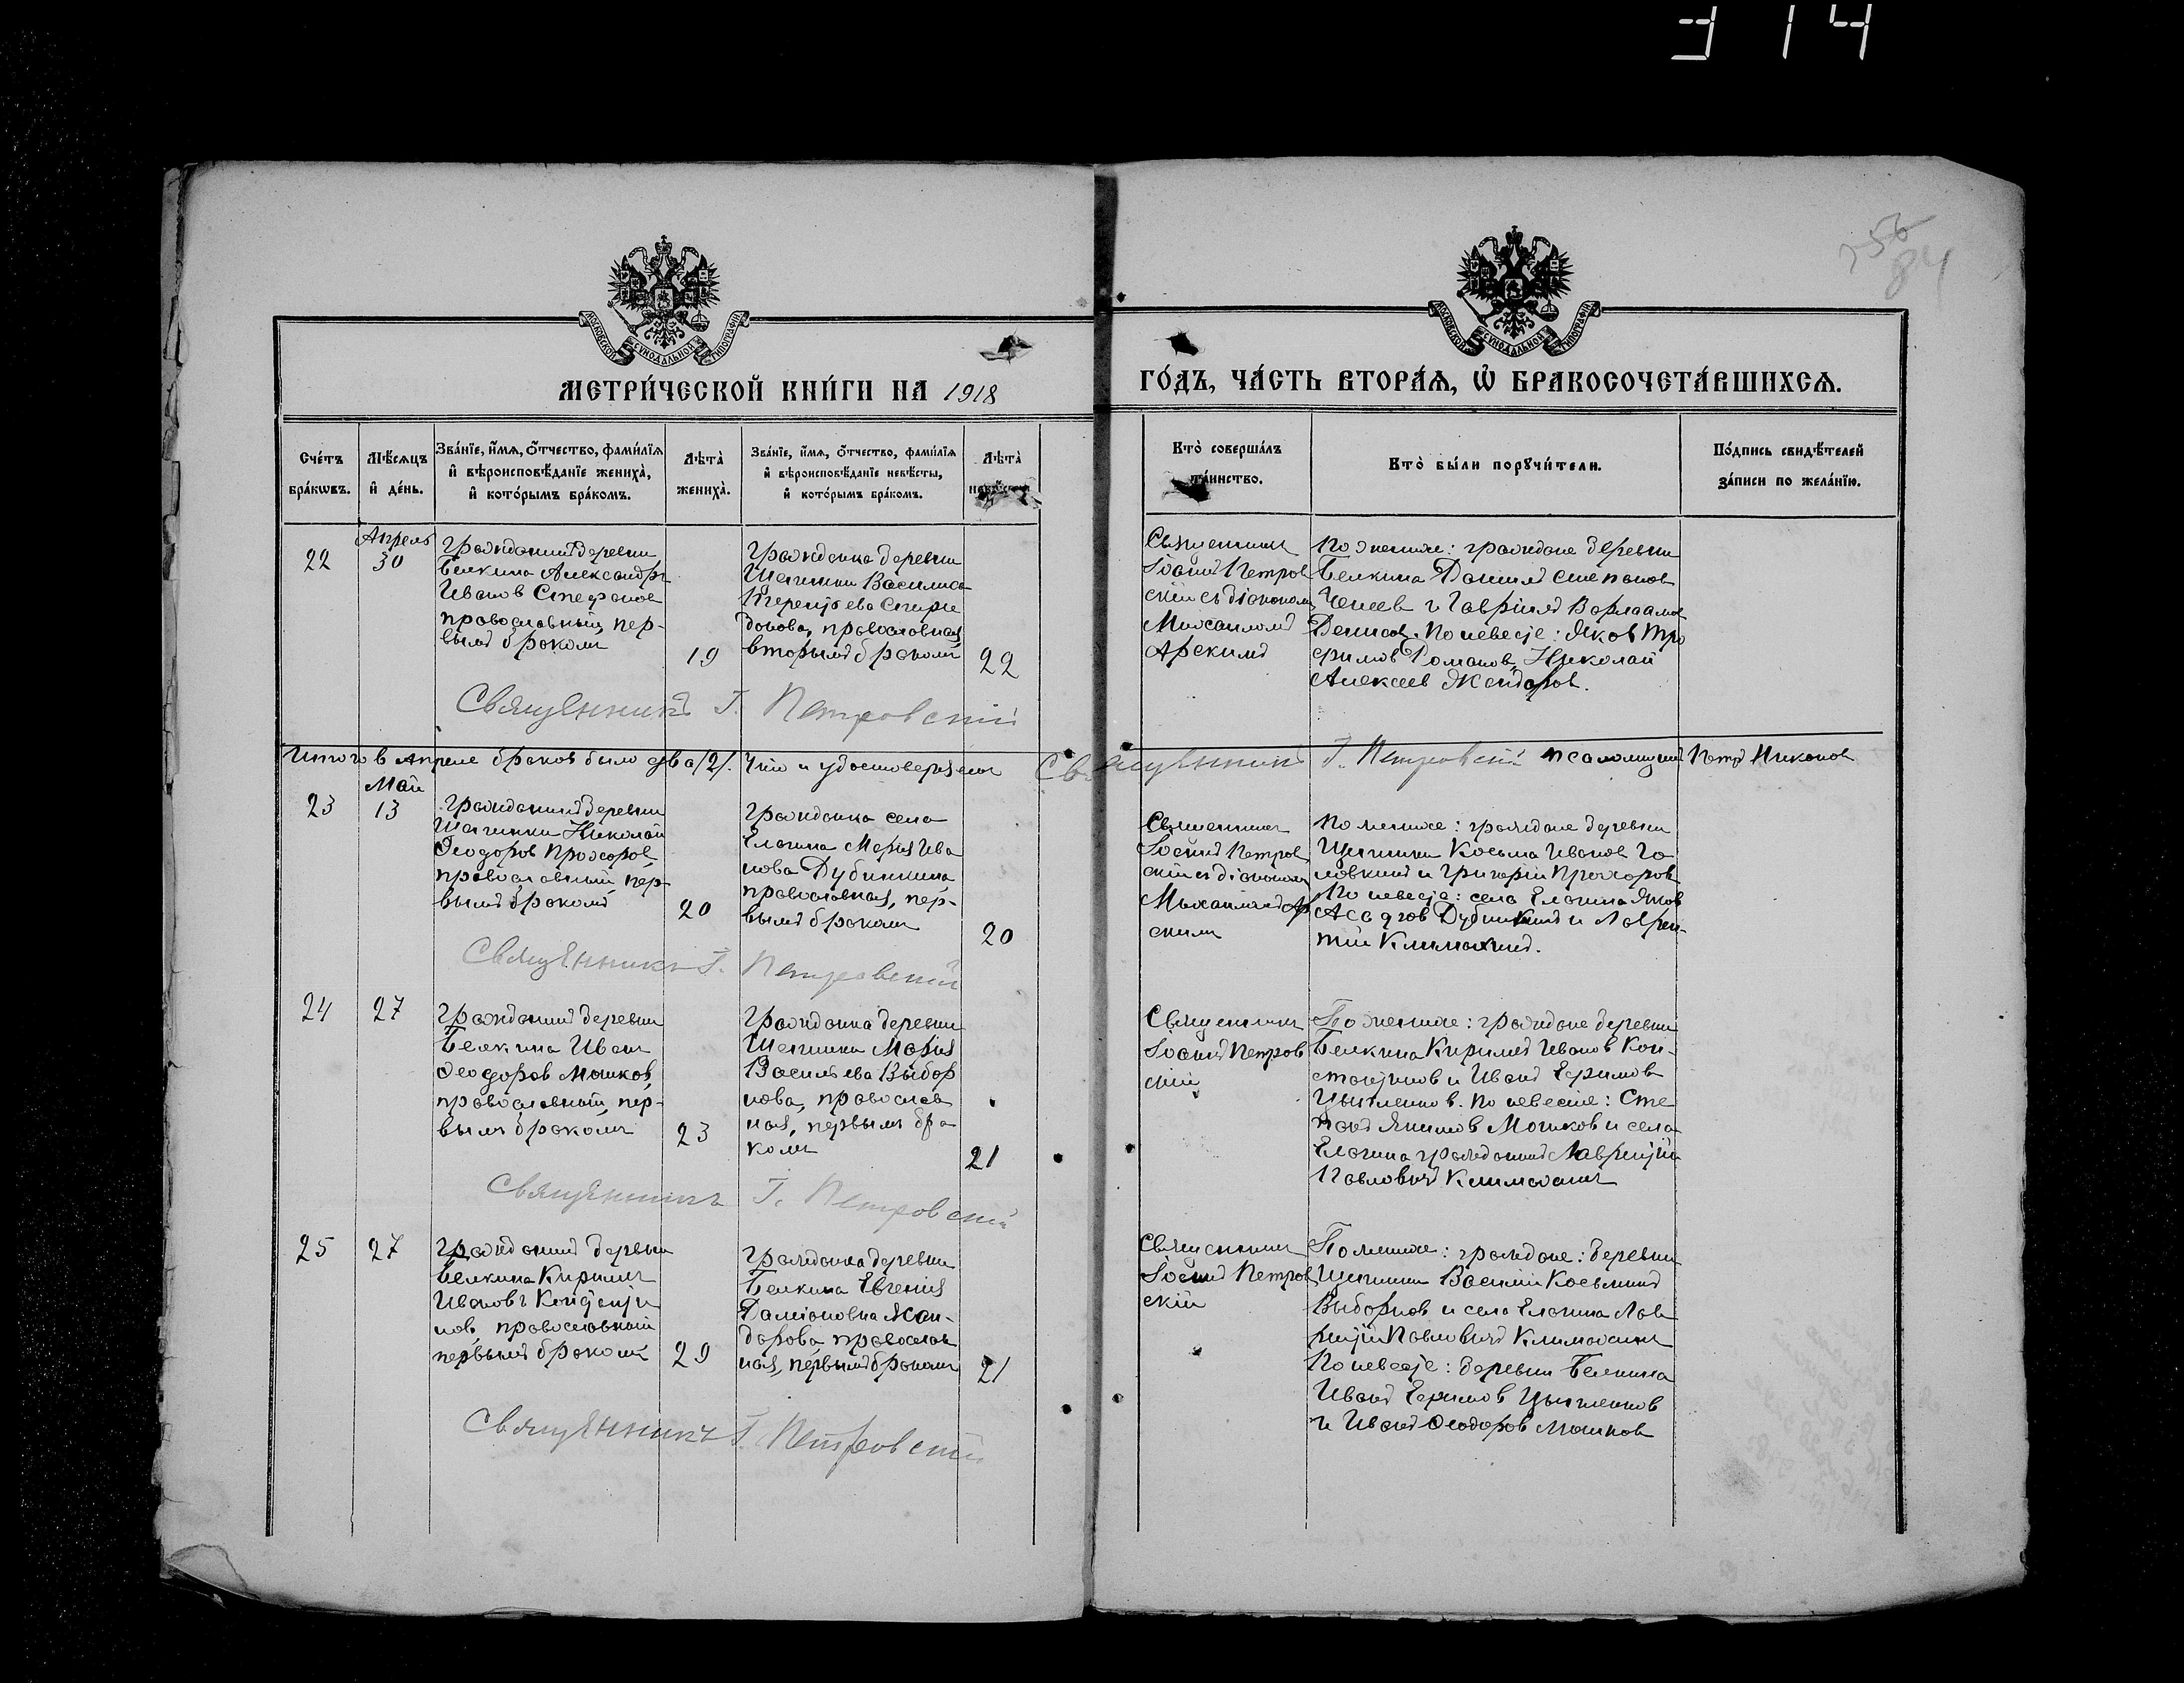 314
256
84
МОСКОВСКОЙ СѴНОДАЛЬНОЙ ТИПОГРАФІИ
МОСКОВСКОЙ СѴНОДАЛЬНОЙ ТИПОГРАФІИ
МЕТРИ́ЧЕСКОЙ КНИ́ГИ НА 1918
ГО́ДЪ, ЧА́СТЬ ВТОРА́Ѧ, Ѡ҆ БРАКОСОЧЕТА́ВШИХСѦ.
Сче́тъ
бра́кѡвъ.
Мѣ́сѧцъ
и҆ де́нь.
Зва́нїе, и҆́мѧ, о҆́тчество, фами́лїѧ
и҆ вѣроисповѣ́данїе жениха̀,
и҆ кото́рымъ бра́комъ.
Лѣта̀
жениха̀.
Зва́нїе, и҆́мѧ, о҆́тчество, фами́лїѧ
и҆ вѣроисповѣ́данїе невѣ́сты,
и҆ кото́рымъ бра́комъ.
Лѣта̀
Кто̀ соверша́лъ
та́инство.
Кто̀ бы́ли порꙋчи́тели.
По́дпись свидѣ́телей
за́писи по жела́нїю.
22
Апрель
30
гражданинъ деревни
Белкина Александръ
Иванов Стефанов
православный, пер-
вымъ бракомъ
19
гражданка деревни
Щегинки Василиса
Терентьева Спири
донова, православная
вторымъ бракомъ
22
Священникъ
Іоаннъ Петров
скій съ діакономъ
Михаиломъ
Арскимъ
По женихе: граждане деревни
Белкина Даниилъ Степанов
Чекеев и Гавріилъ Варлаамов
Денисов. По невесте: Яков Тро
фимов Романов, Николай
Алексеев Жандаров.
Священникъ І. Петровскій
Итого в Апреле браков было два /2/. Что и удостоверяем Священникъ І. Петровскій псаломщикъ Петръ Никонов
23
Май
13
гражданинъ деревни
Щегинки Николай
Феодоров Прохоров,
православный, пер-
вымъ бракомъ
20
гражданка села
Елагина Мария Ива
нова Дубинкина
православная, пер-
вымъ бракомъ
20
Священникъ
Іоаннъ Петров
скій съ діакономъ
Михаиломъ Ар
скимъ
По женихе: граждане деревни
Щегинки Косьма Иванов Го
ловкинъ и Григорій Прохоров
По невесте: села Елагина Яков
Дубинкинъ и Лаврен-
тій Климахинъ.
Священникъ І. Петровскій
24
27
гражданинъ деревни
Белкина Иванъ
Феодоров Мошков,
православный, пер-
вымъ бракомъ
23
гражданка деревни
Щегинки Мария
Васильева Выбор
нова, православ
ная, первымъ бра
комъ
21
Священникъ
Іоаннъ Петров
скій
По женихе: граждане деревни
Белкина Кириллъ Иванов Кон-
стантинов и Иванъ Ефимов
Цыпленков. По невесте: Сте
панъ Якимов Мошков и села
Елагина гражданинъ Лаврентій
Павловичъ Климахинъ
Священникъ І. Петровскій
25
27
гражданинъ деревни
Белкина Кириллъ
Ивановъ Константи
нов, православный
первымъ бракомъ
29
гражданка деревни
Белкина Евгения
Дамиановна Жан-
дарова, православ
ная, первымъ бракомъ
21
Священникъ
Іоаннъ Петров
скій
По женихе: граждане: деревни
Щегинки Василій Косьминъ
Выборнов и села Елагина Лав
рентій Павловичъ Климахинъ
По невесте: деревни Белкина
Иванъ Ефимов Цыпленков
и Иванъ Феодоров Мошков
Священникъ І. Петровскій